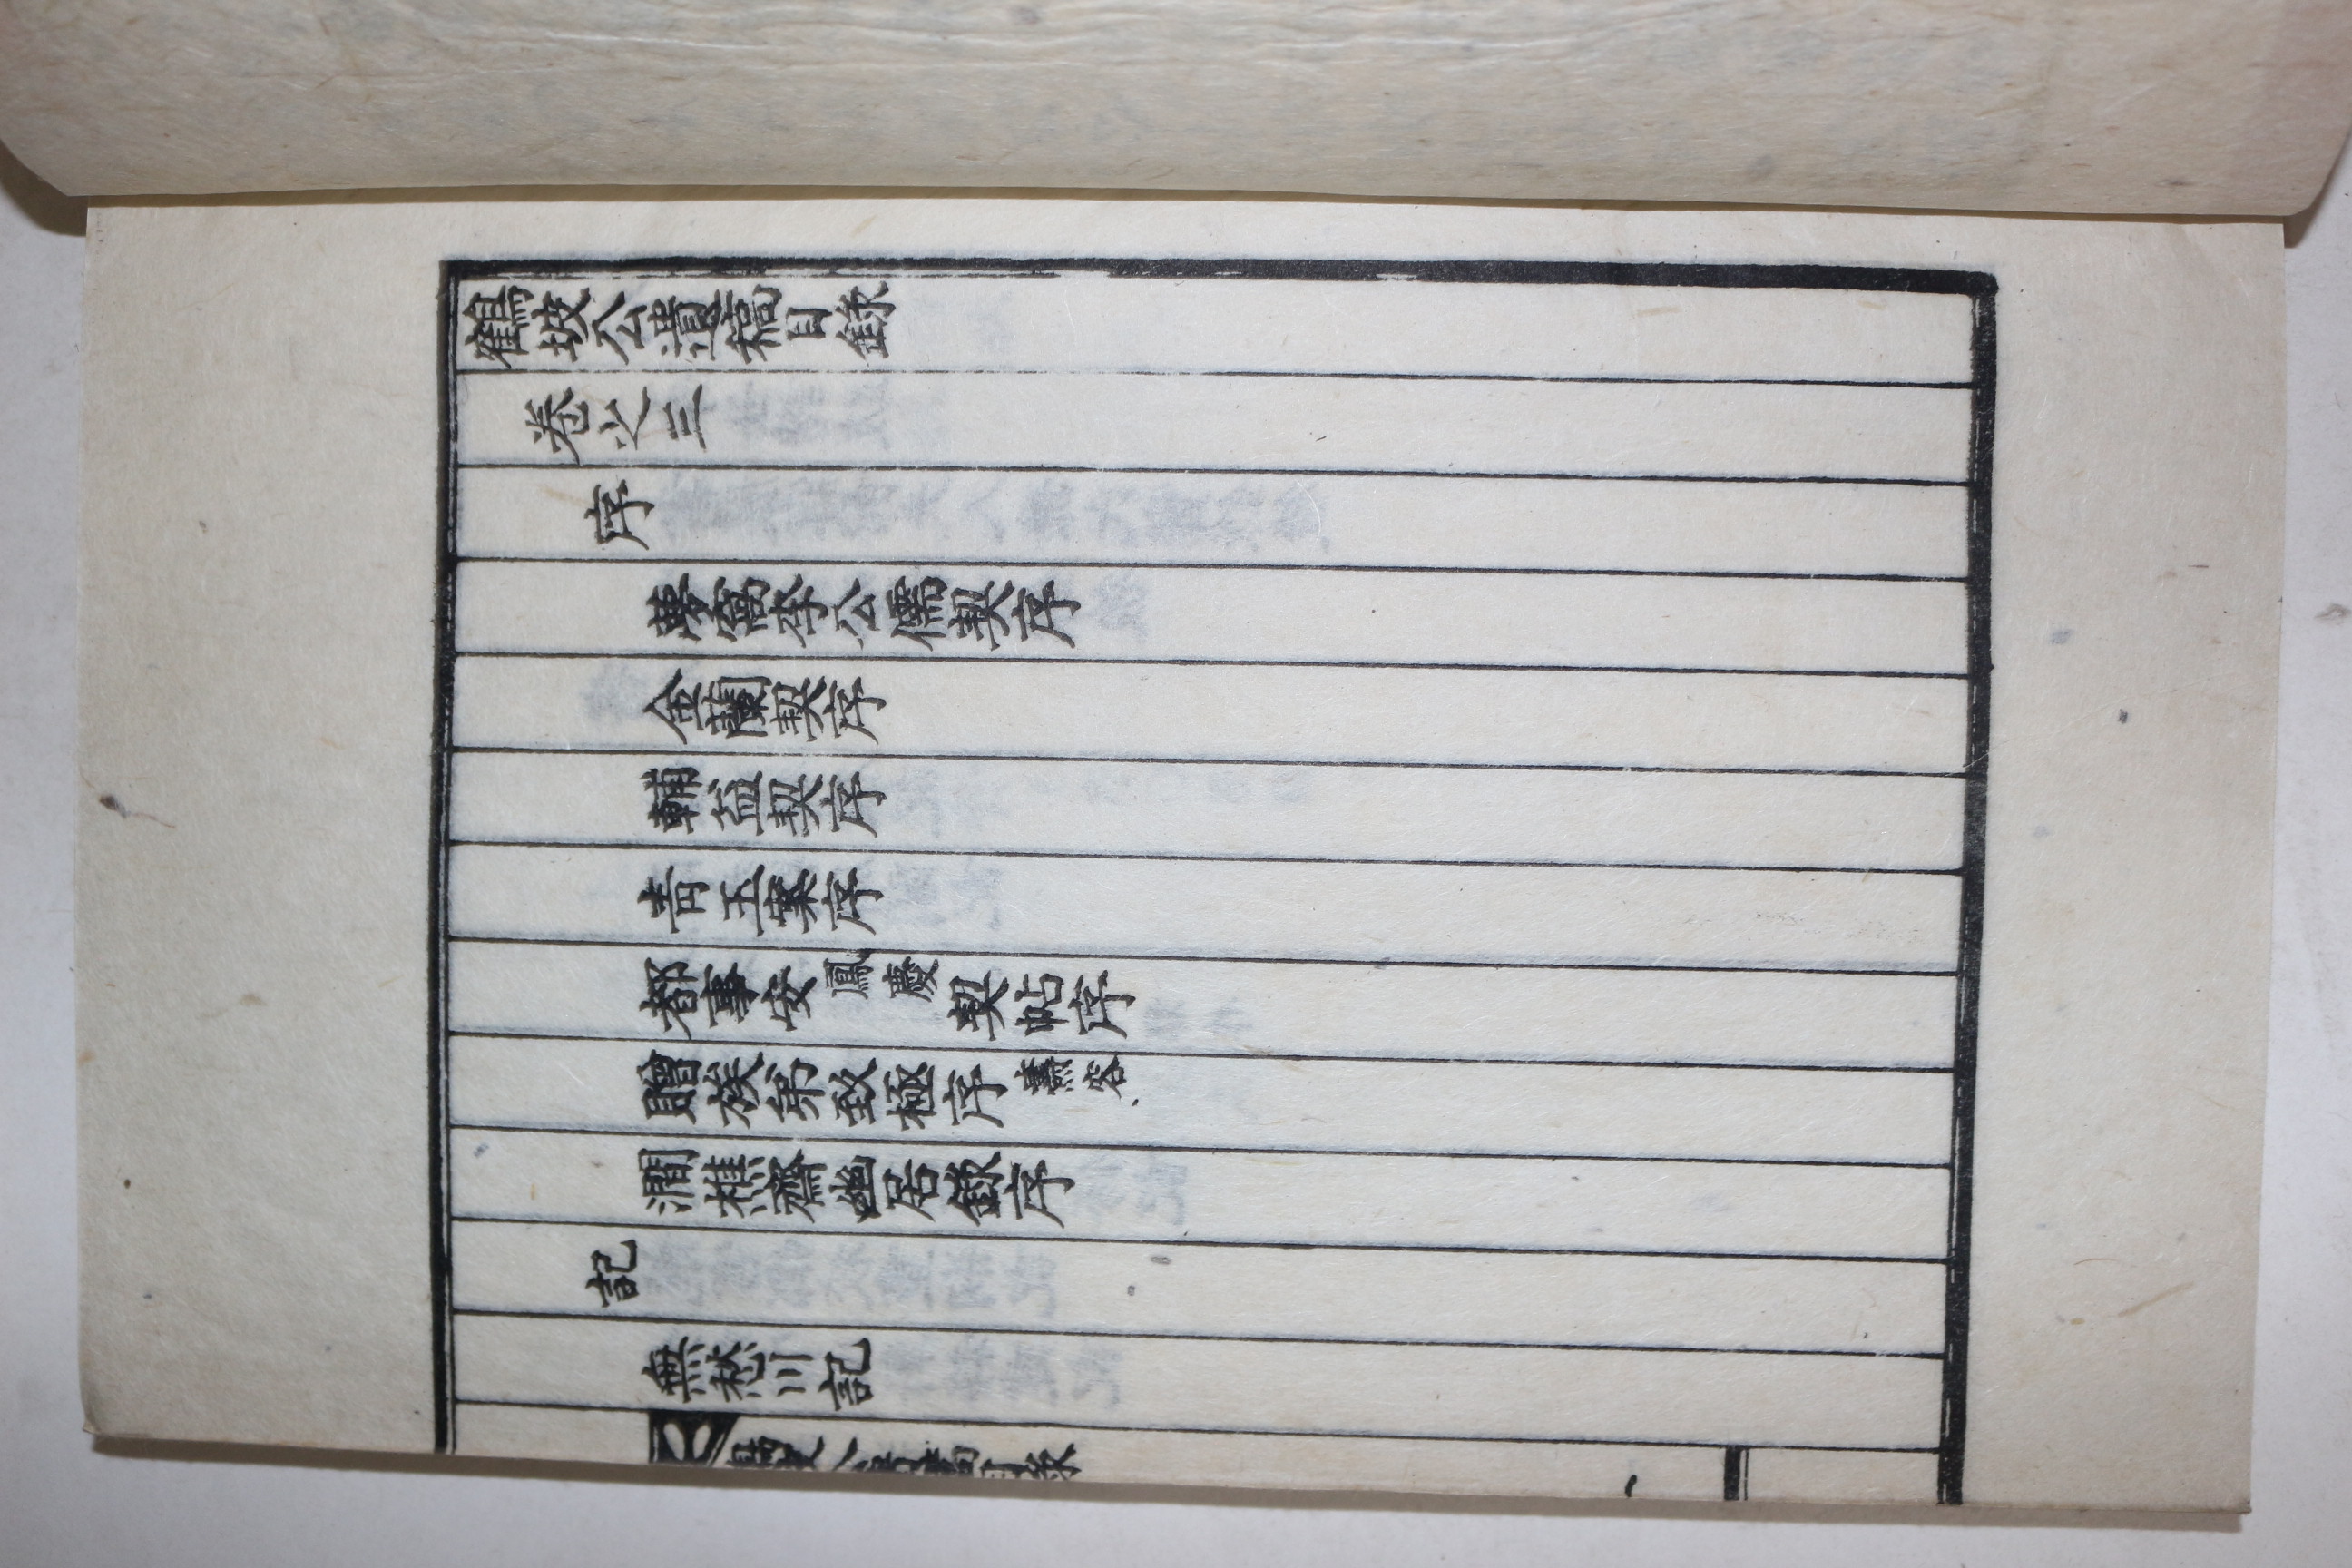 鶴坡公遺稿目錄
卷之三
序
夢窩李公儒契序
金蘭契序
輔益契序
青玉案序
都事安鳳慶契帖序
贈族弟致極序 燾容
澗樵齋幽居敘序
記
無愁川記
鶴坡公遺稿目錄